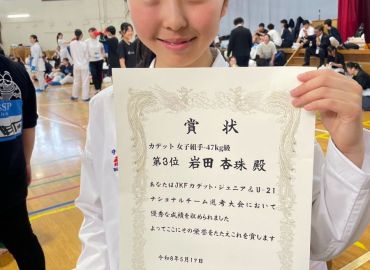 賞状
カデット 女子組手-47kg級
第3位 岩田 杏珠 殿
あなたはJKFカデット・ジュニア&U-21
ナショナルチーム選考大会において
優秀な成績を収められました
よってここにその栄誉をたたえこれを賞します
令和8年5月17日